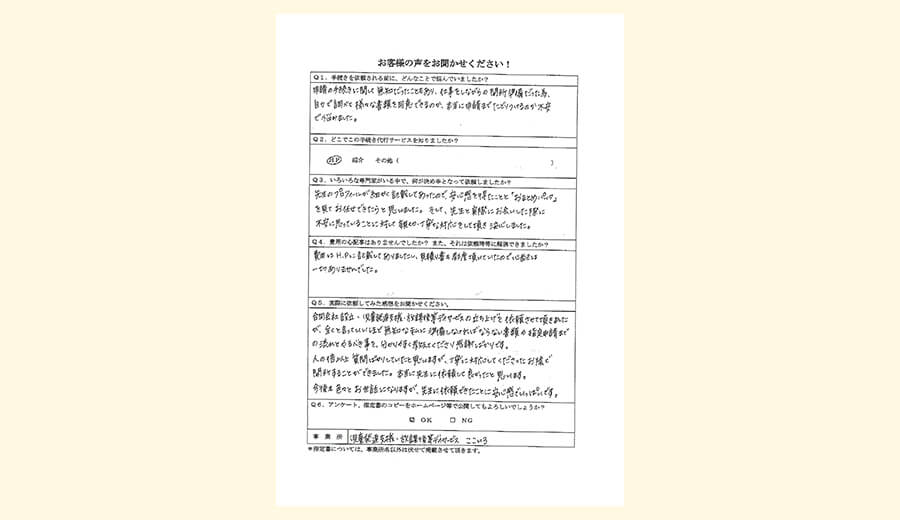 お客様の声をお聞かせください！
Q1．手続きを依頼される前に、どんなことで悩んでいましたか？
申請の手続きに関して無知だったこともあり、仕事をしながらの開所準備だった為、
自分で調べて様々な書類を用意できるのか、本当に申請までたどりつけるのか不安
で悩みました。
Q2．どこでこの手続き代行サービスを知りましたか？
HP 紹介 その他（ ）
Q3．いろいろな専門家がいる中で、何が決め手となって依頼しましたか？
先生のプロフィールが細かく記載してあったので、安心感を得たことと「おまとめパック」
を見てお任せできたらと思いました。そして、先生と実際にお会いした際に
不安に思っていることに対して親切・丁寧な対応をして頂き決心しました。
Q4．費用の心配事はありませんでしたか？また、それは依頼時等に解消できましたか？
費用はH.Pに記載してありましたし、見積り書も都度頂いていたので心配は
一切ありませんでした。
Q5．実際に依頼してみた感想をお聞かせください。
合同会社設立・児童発達支援・放課後等デイサービスの立ち上げを依頼させて頂きました
が、全くと言っていいほど無知な私に準備しなければならない書類や指定申請まで
の流れとやるべき事を、分かりやすく教えてくださり感謝しかありません。
人の倍以上質問ばかりしていたと思いますが、丁寧に対応してくださったお陰で
開所することができました。本当に先生に依頼して良かったと思います。
今後も色々とお世話になりますが、先生に依頼できたことに安心感でいっぱいです。
Q6．アンケート、指定書のコピーをホームページ等で公開してもよろしいでしょうか？
☑ OK □ NG
事業所 児童発達支援・放課後等デイサービス ここいろ
＊指定書については、事業所名以外は伏せて掲載させて頂きます。